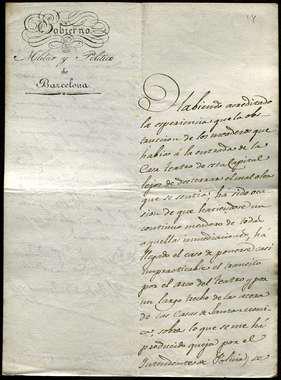 14
Gobierno
Militar y Político
de
Barcelona
Habiendo acreditado
la esperiencia, que la obs-
truccion de los meaderos que
habia à la entrada de la
Casa teatro de esta Capital
lejos de desterrar el mal olor
que se sentia, ha sido oca-
sion de que haciendose un
continuo meadero de toda
aquella inmediacion, há
llegado el caso de ponerse casi
impracticable el transito
por el arco del teatro y por
un largo trecho de las aceras
de las Casas de
sobre lo que se me há
producido queja por el
Intendente de Policia, se